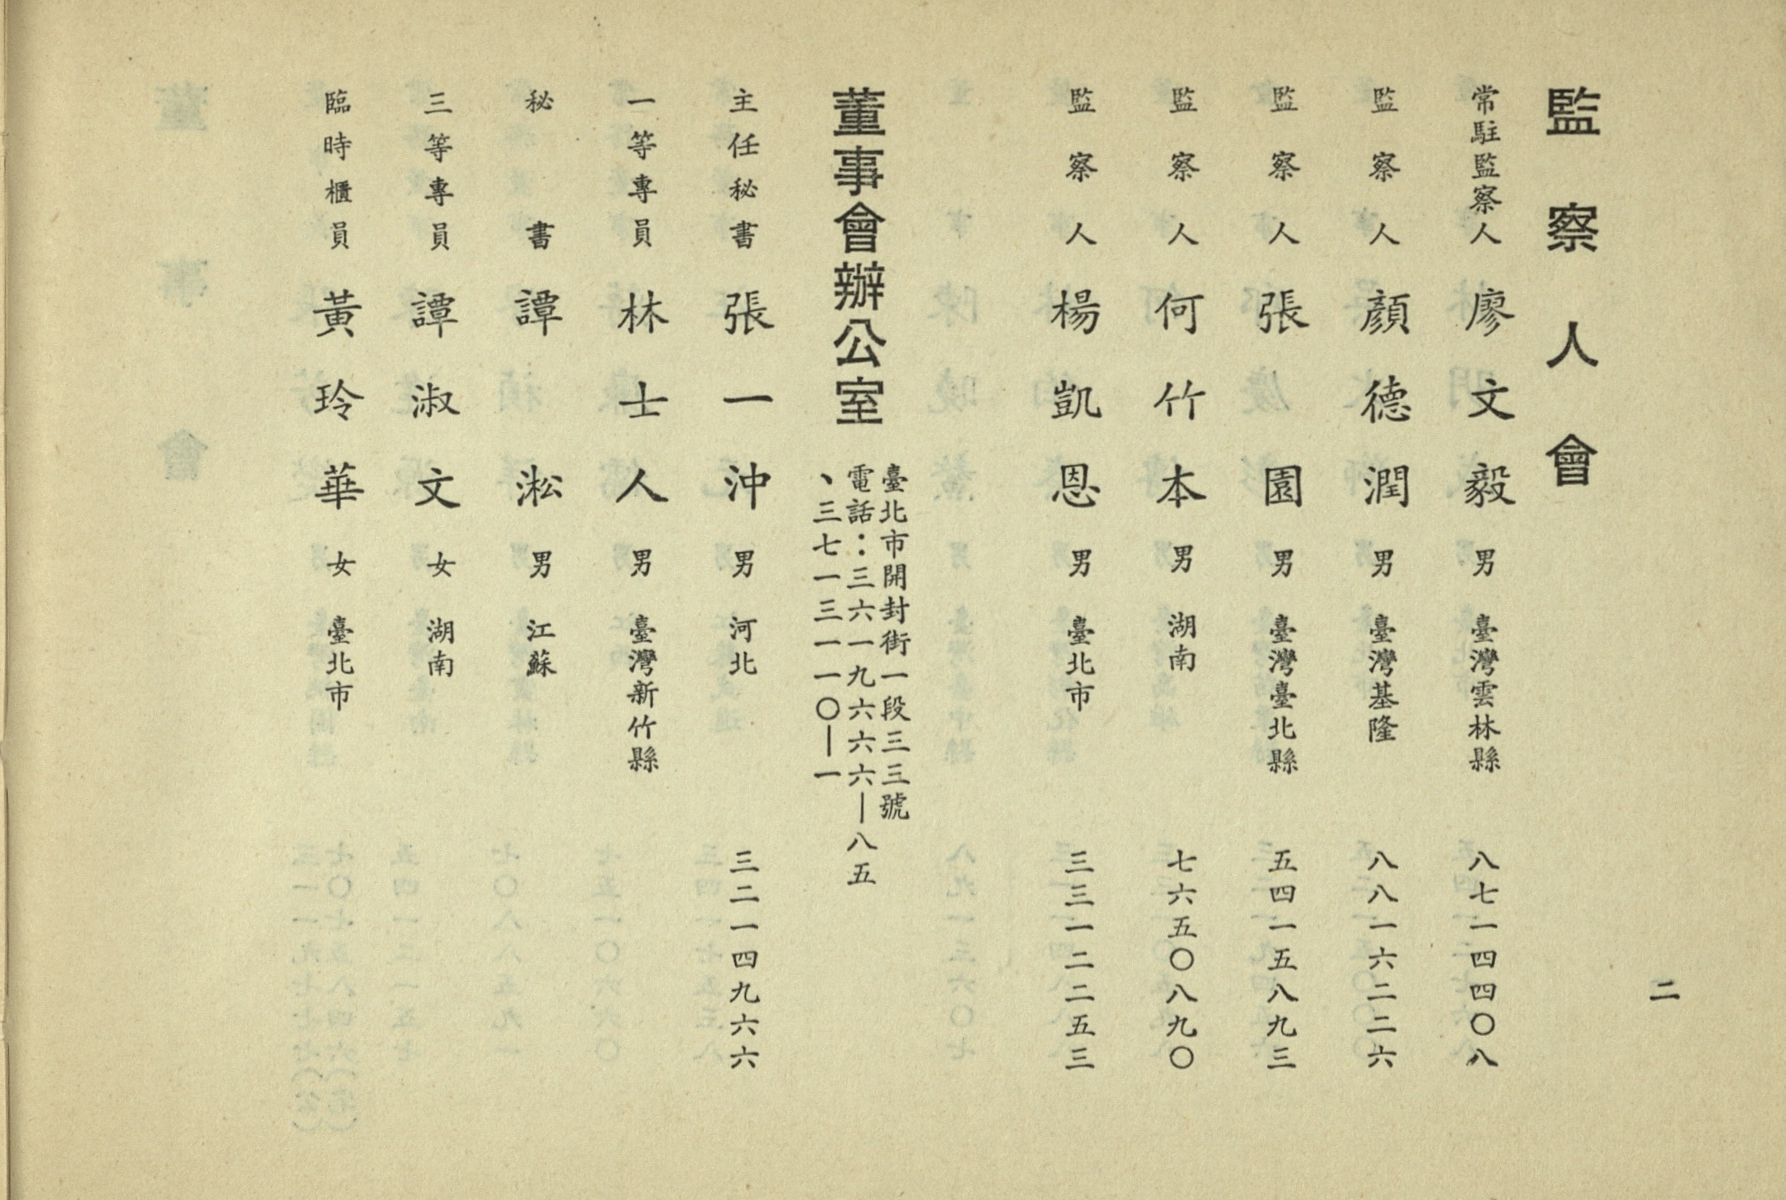 二
監察人會
常駐監察人 廖文毅 男 臺灣雲林縣 八七一四四〇八
監察人 顏德潤 男 臺灣基隆 八八一六二二六
監察人 張園 男 臺灣臺北縣 五四一五八九三
監察人 何竹本 男 湖南 七六五〇八九〇
監察人 楊凱恩 男 臺北市 三三一二二五三
董事會辦公室
臺北市開封街一段三三號
電話：三六一九六六六—八五
、三七一三一一〇—一
主任秘書 張一沖 男 河北 三二一四九六六
一等專員 林士人 男 臺灣新竹縣
秘書 譚淞 男 江蘇
三等專員 譚淑文 女 湖南
臨時櫃員 黃玲華 女 臺北市